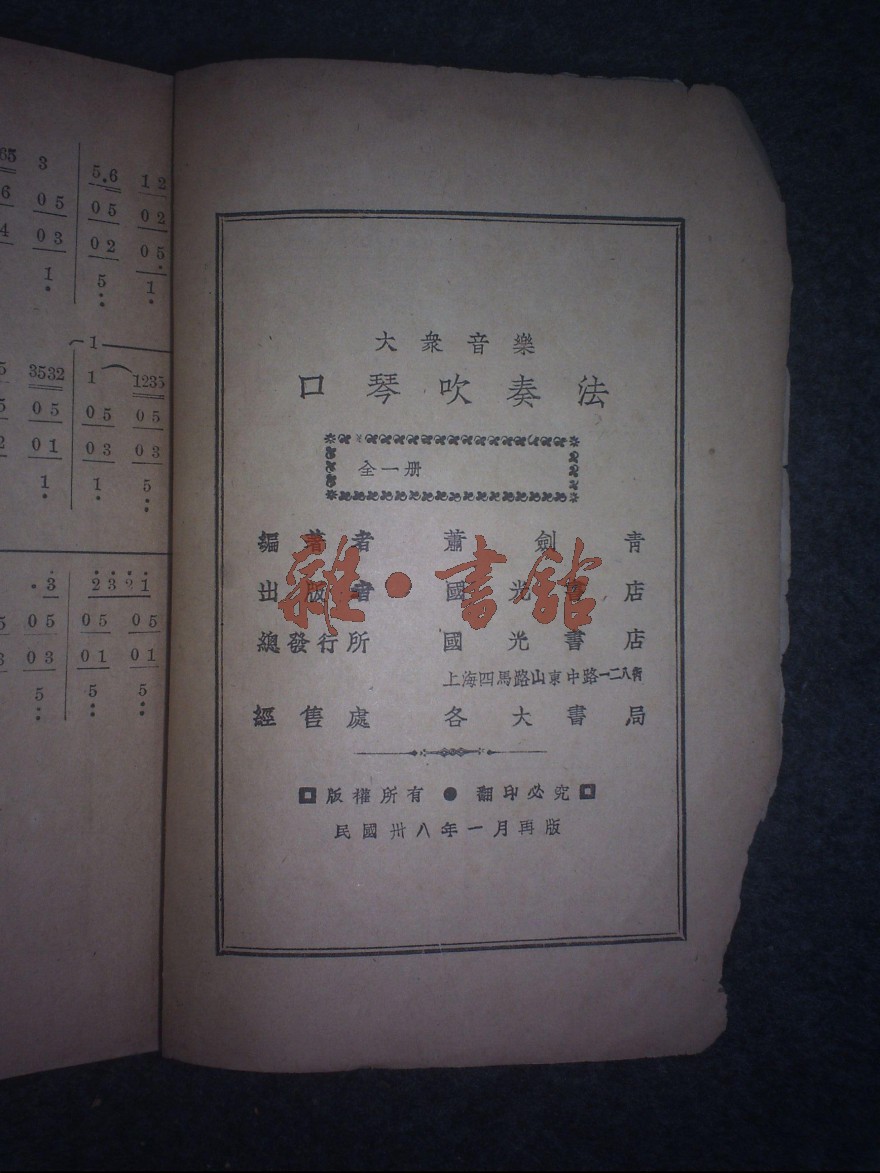 65 3 | 5.6 1 2
6 0 5 | 0 5 0 2
4 0 3 | 0 2 0 5
1 | 5 1
1
5 3532 | 1 1235
5 0 5 | 0 5 0 5
2 0 1 | 0 3 0 3
1 | 1 5
3 | 2 3 2 1
5 0 5 | 0 5 0 5
3 0 3 | 0 1 0 1
5 | 5 5
大衆音樂
口琴吹奏法
全一册
編著者 蕭劍青
出版者 國光書店
總發行所 國光書店
上海四馬路山東中路一二八衖
經售處 各大書局
版權所有 ● 翻印必究
民國卅八年一月再版
雜·書館